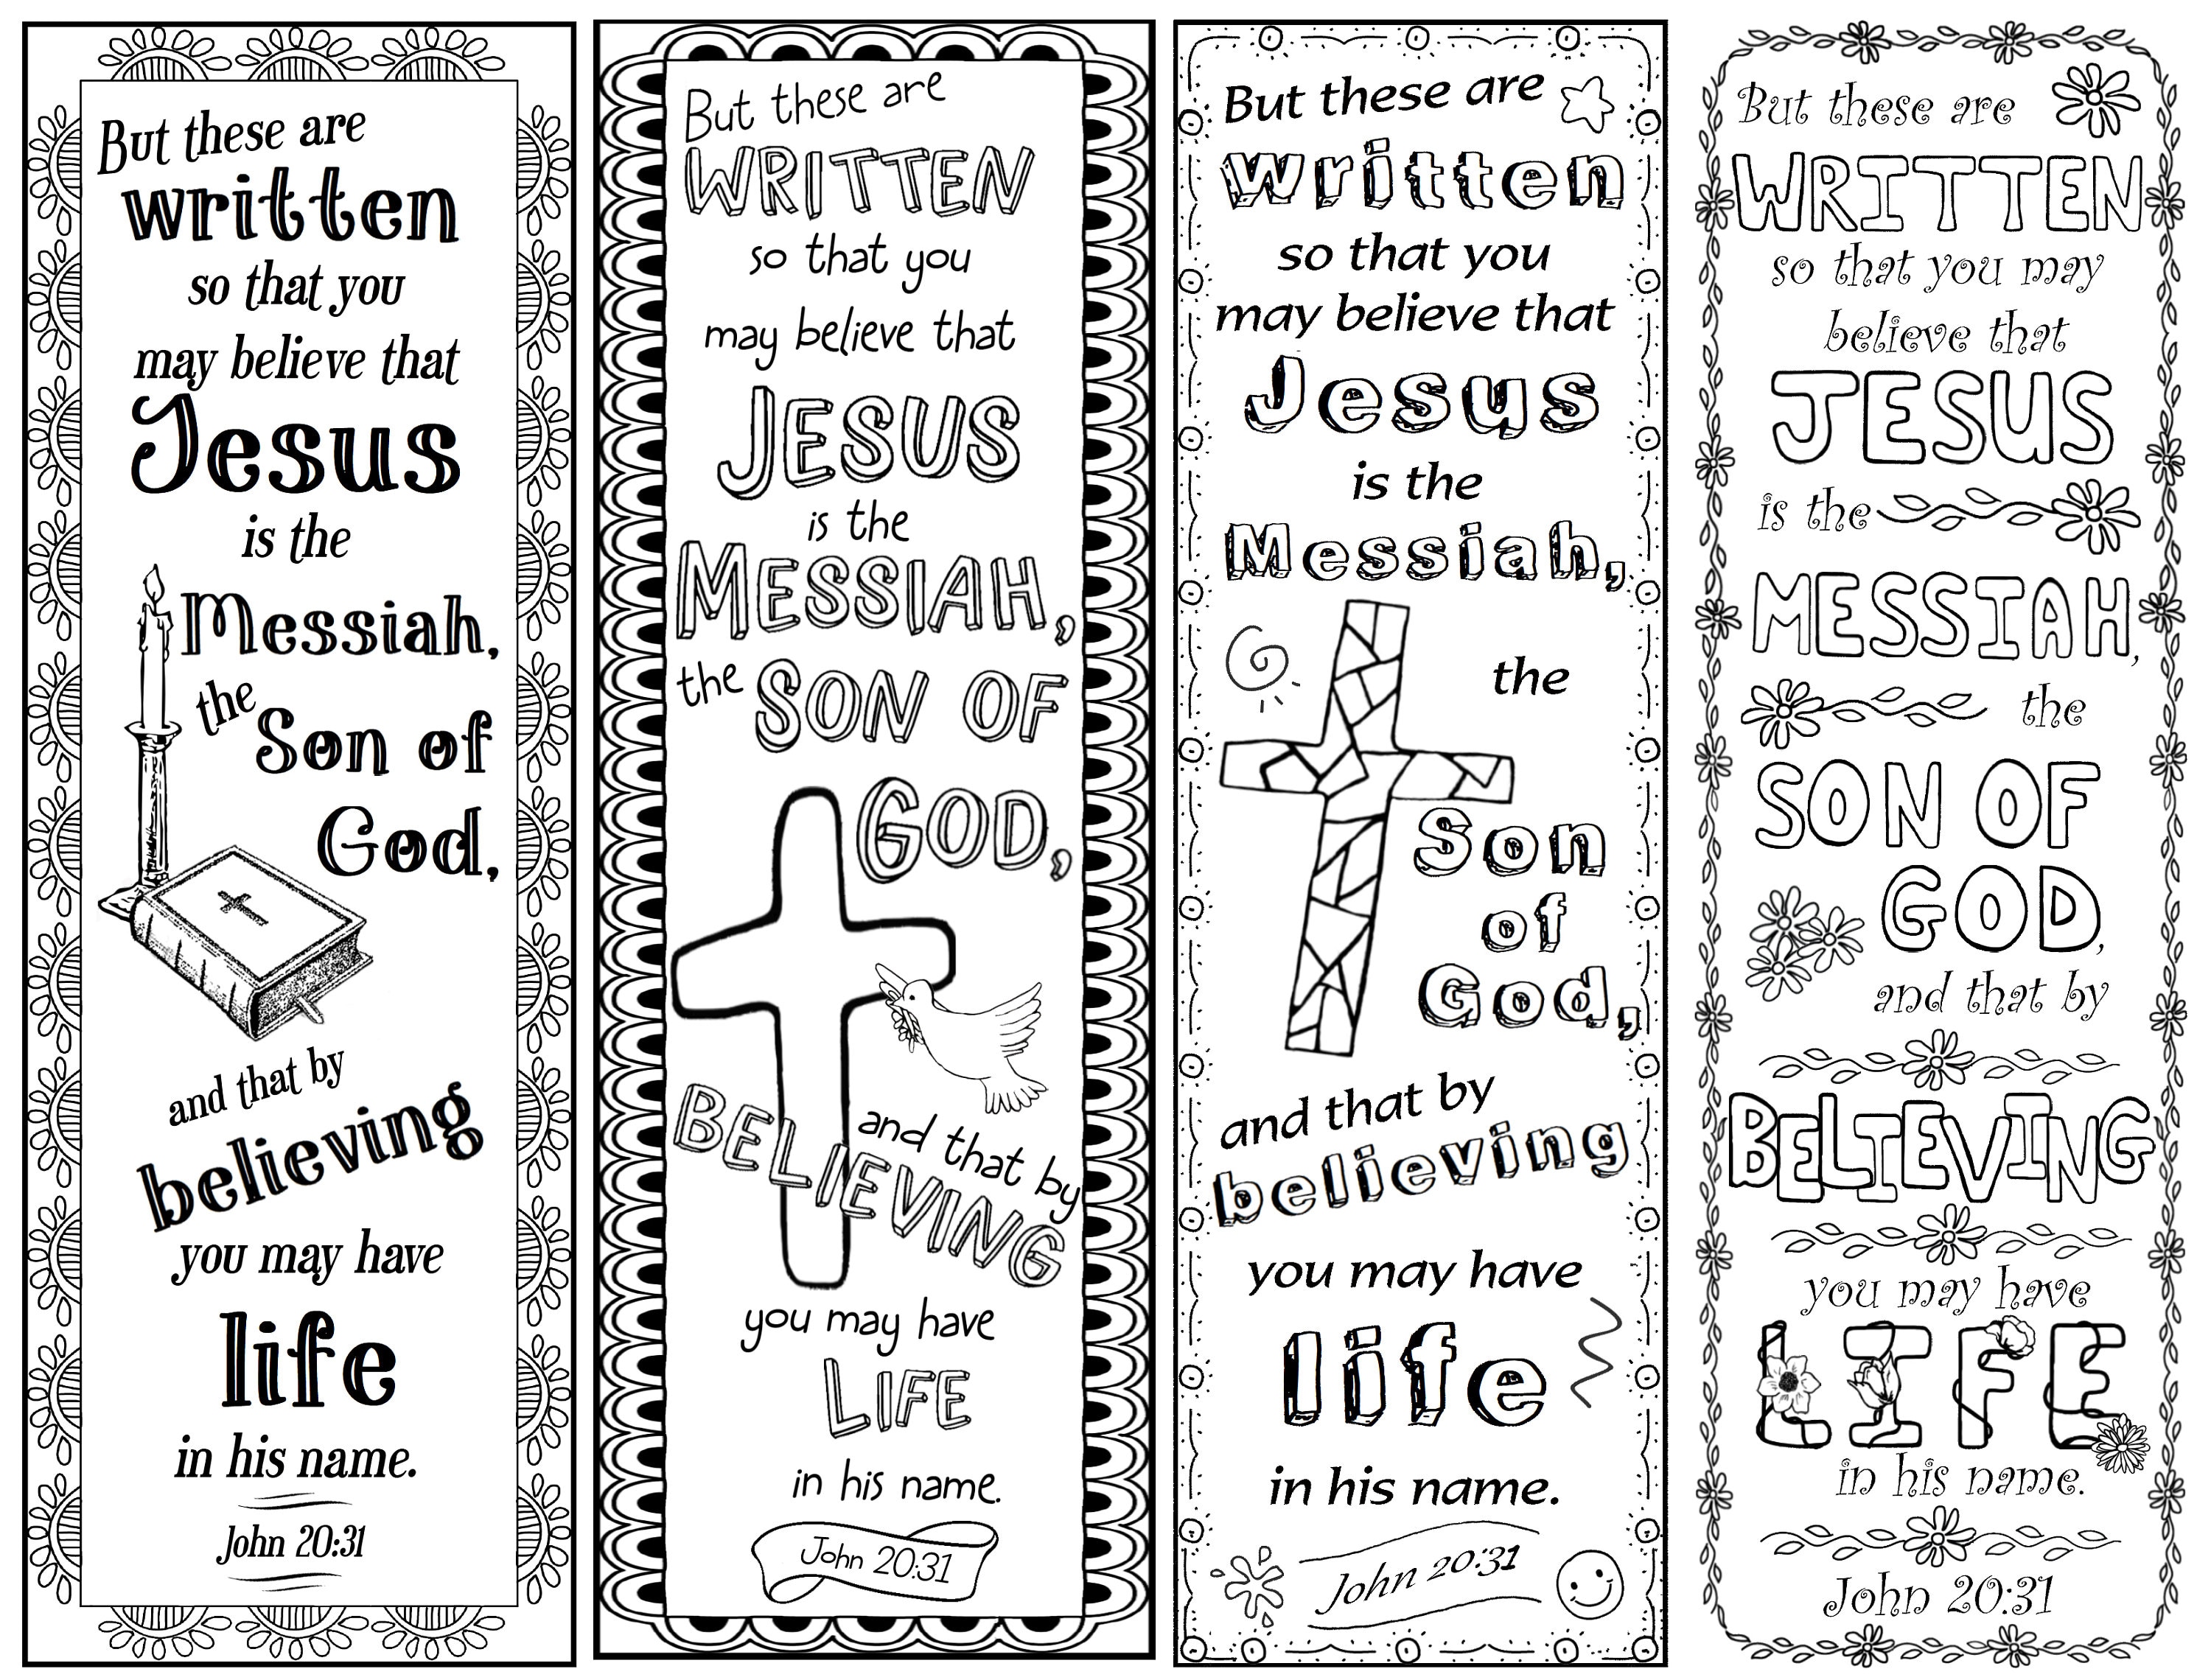 But these are
written
so that you
may believe that
Jesus
is the
Messiah,
the
Son of
God,
and that by
believing
you may have
life
in his name.
John 20:31
But these are
WRITTEN
so that you
may believe that
JESUS
is the
MESSIAH,
the SON OF
GOD,
and that by
BELIEVING
you may have
LIFE
in his name.
John 20:31
But these are
written
so that you
may believe that
Jesus
is the
Messiah,
the
Son
of
God,
and that by
believing
you may have
life
in his name.
John 20:31
But these are
WRITTEN
so that you may
believe that
JESUS
is the
MESSIAH,
the
SON OF
GOD,
and that by
BELIEVING
you may have
LIFE
in his name.
John 20:31